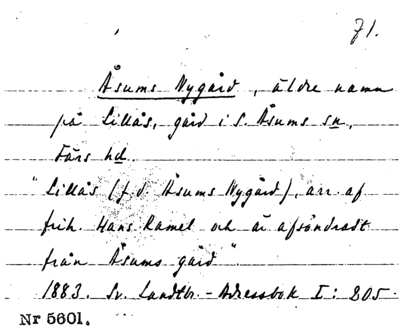 71.
Åsums Nygård, äldre namn
på Lillås, gård i S. Åsums sn,
Färs hd.
"Lillås (f. d. Åsums Nygård), arr. af
frih. Hans Ramel och är afsöndradt
från Åsums gård"
1883. Sv. Landtbr.-Adressbok I: 205.
Nr 5601.